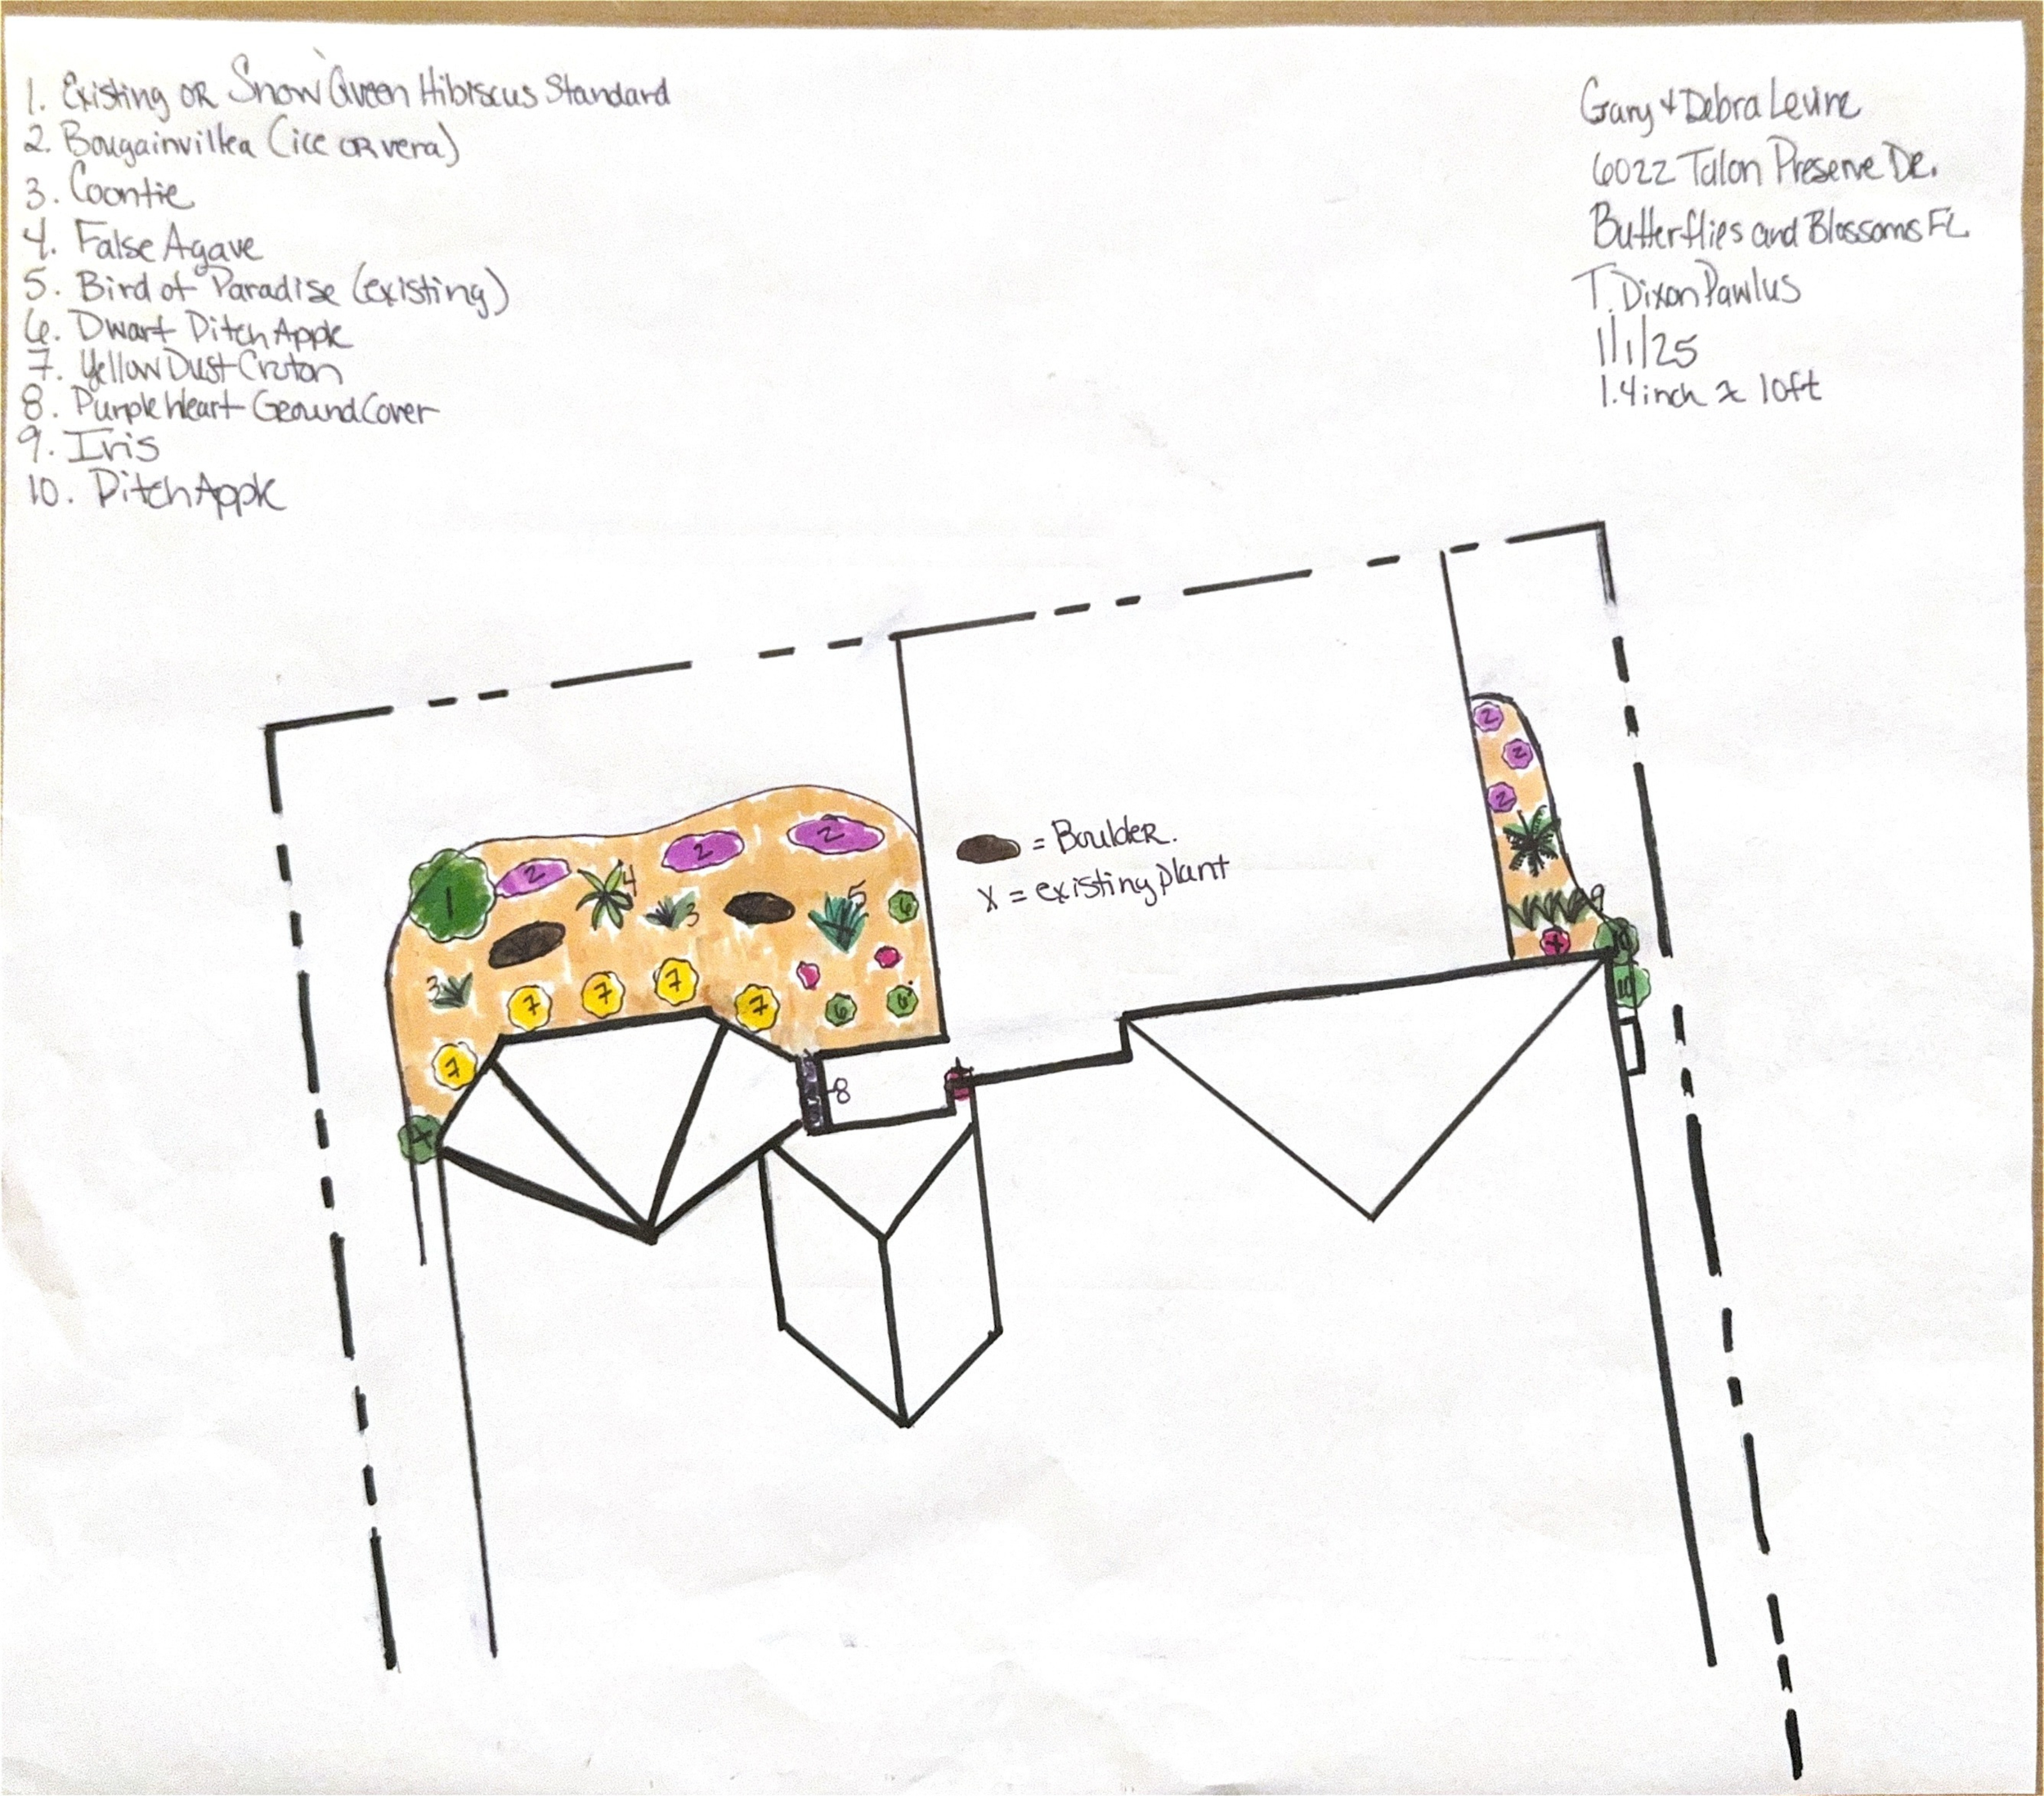 1. Existing OR Snow Queen Hibiscus Standard
2. Bougainvillea (ice OR vera)
3. Coontie
4. False Agave
5. Bird of Paradise (existing)
6. Dwarf Ditch Apple
7. Yellow Dust Croton
8. Purple Heart Ground Cover
9. Iris
10. Ditch Apple
Gary & Debra Levine
6022 Talon Preserve DR.
Butterflies and Blossoms FL
T. Dixon Pawlus
1/1/25
1.4 inch ≈ 10ft
2
2
2
2
2
1
2
4
3
5
6
= Boulder.
X = existing plant
9
X
10
3
7
7
7
7
6
6
7
8
X